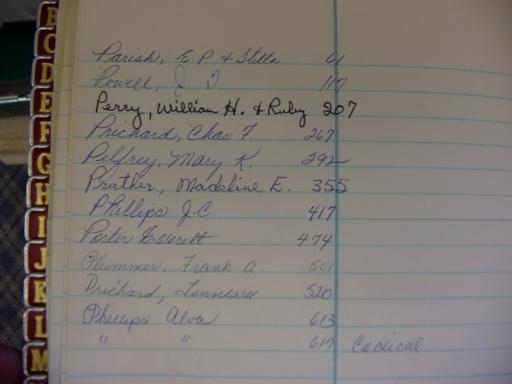 B
C
D
E
F
G
H
I
J
K
L
M
Parish, E. P. & Stella 61
Powell, J. T. 117
Perry, William H. & Ruby 207
Prichard, Chas F 267
Pelfrey, Mary K. 292
Prather, Madaline E. 355
Phillips J. C. 417
Porter Everett 474
Plummer, Frank A 501
Prichard, Tennessee 520
Phillips Alva 613
" " 617 Codical